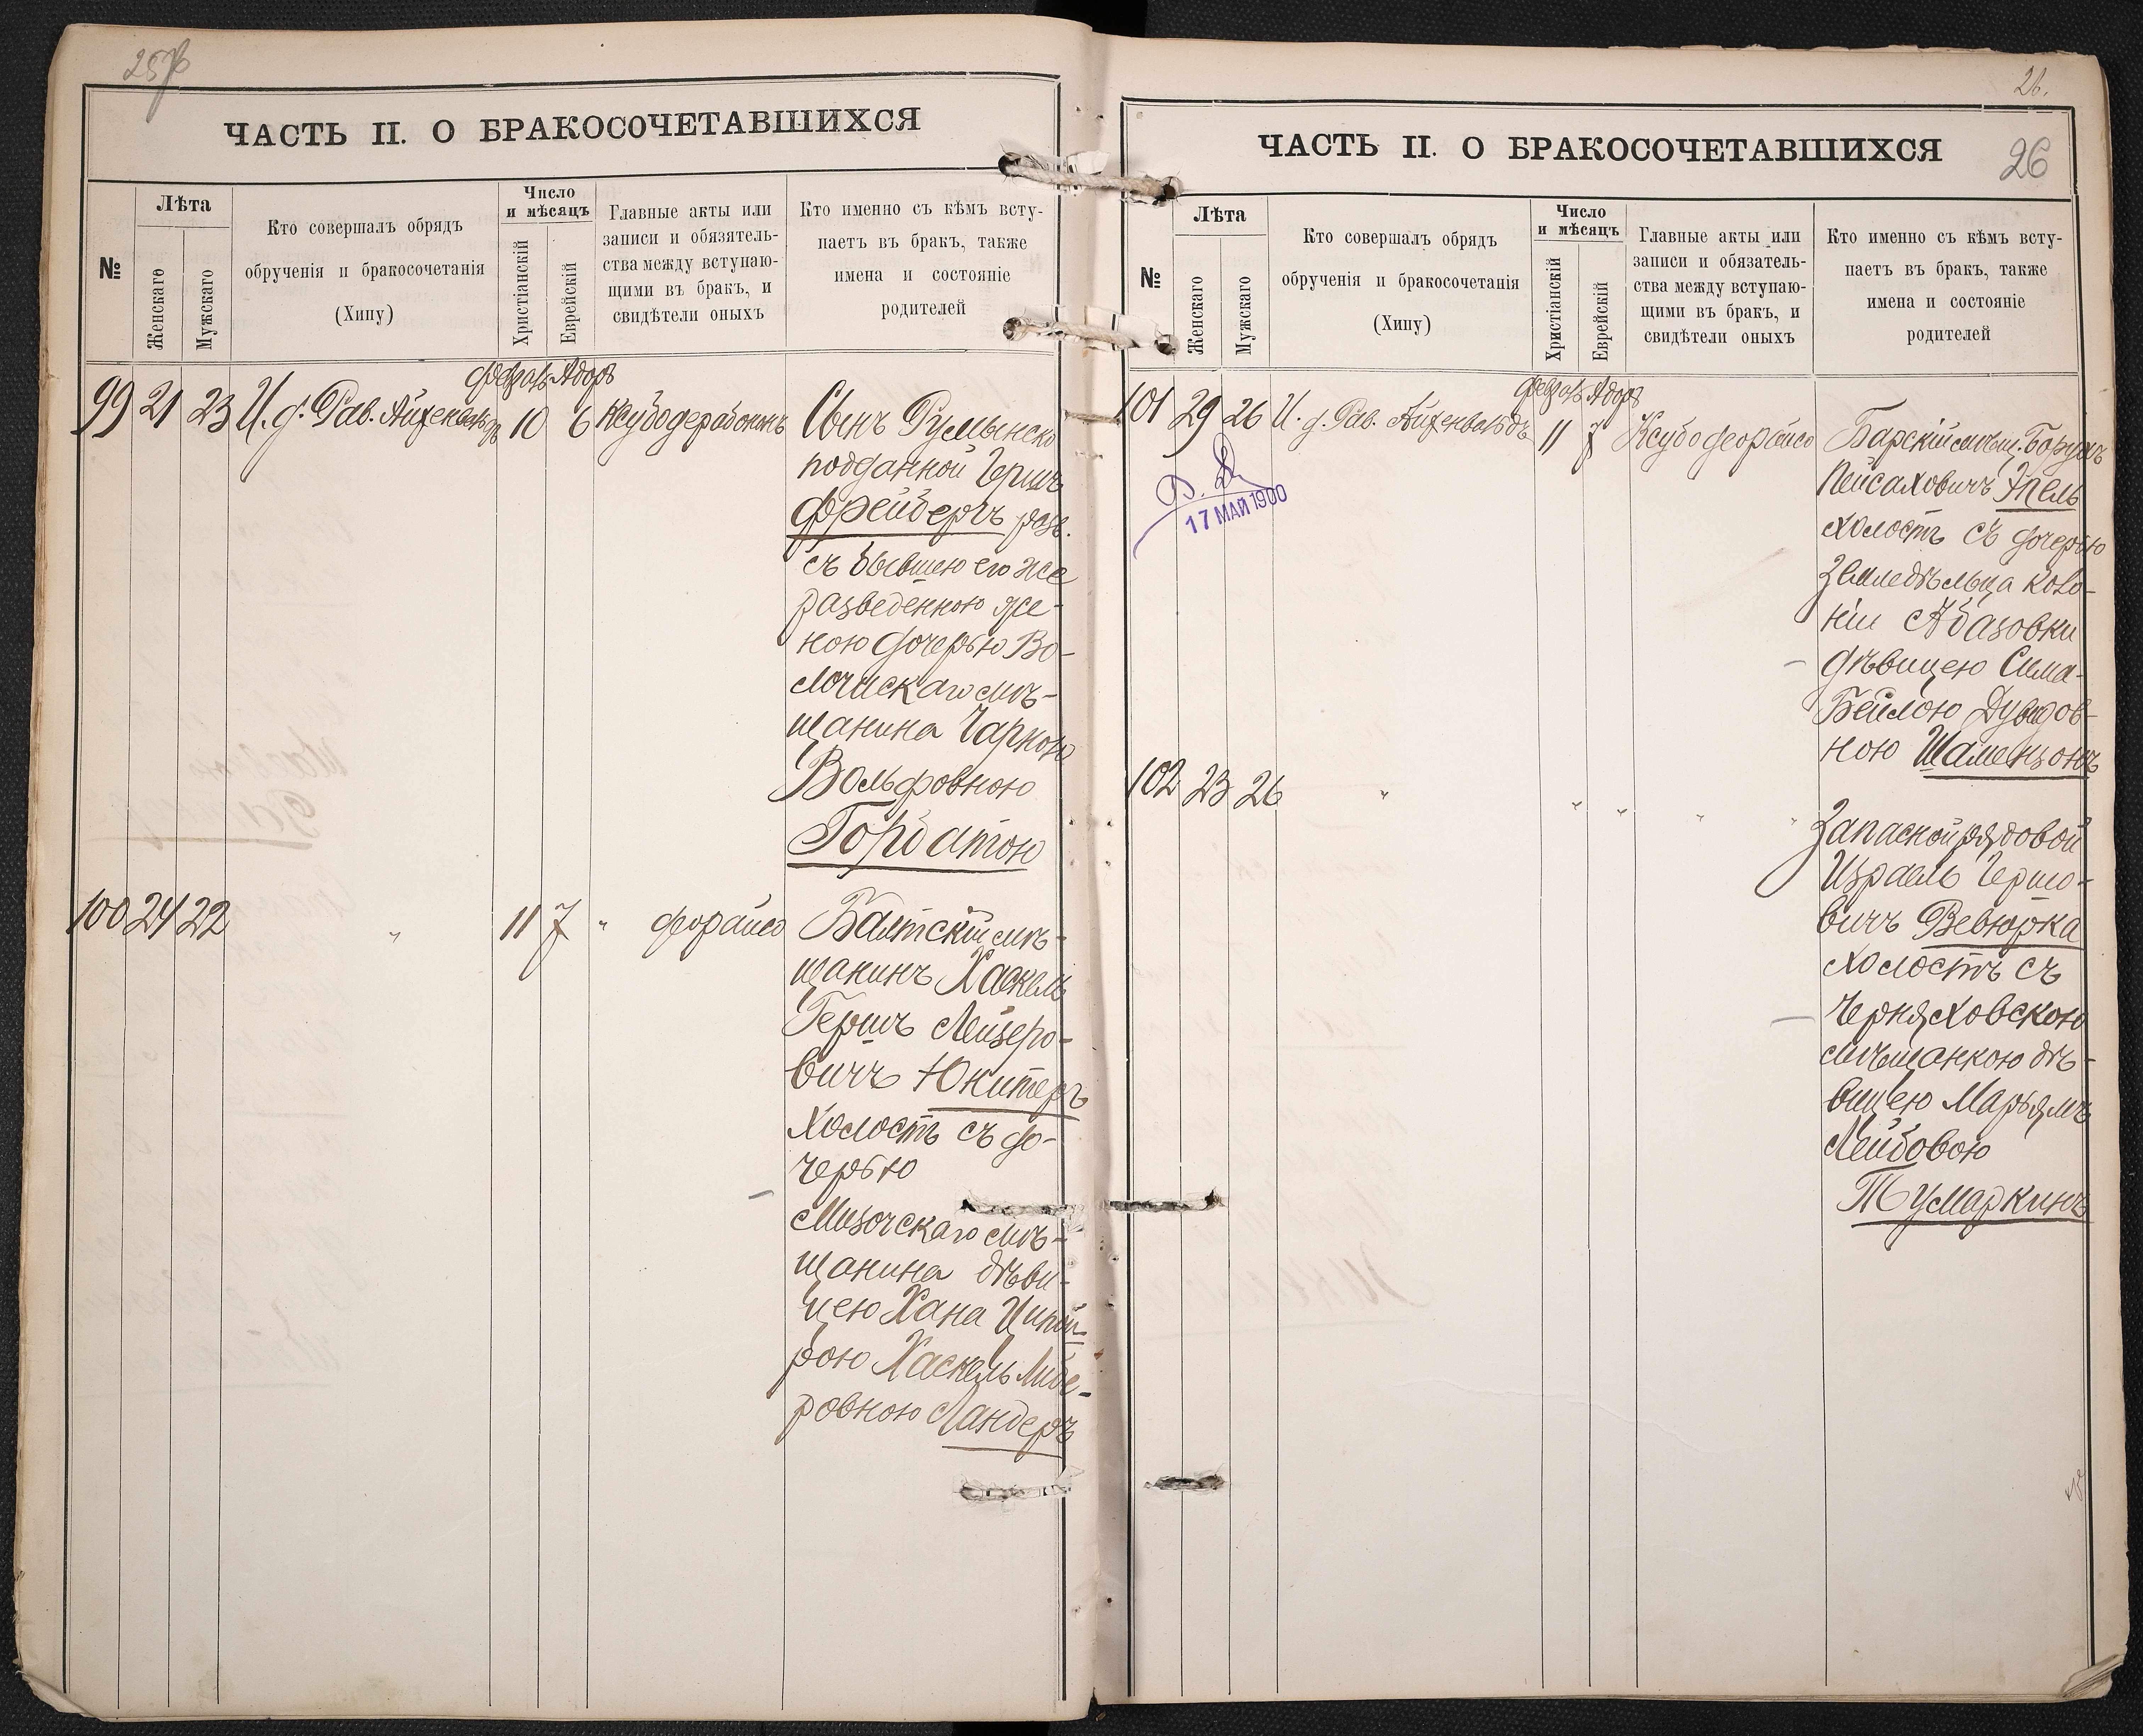 ЧАСТЬ II. О БРАКОСОЧЕТАВШИХСЯ
№
Лѣта
Женскаго
Мужскаго
Кто совершалъ обрядъ
обрученія и бракосочетанія
(Хипу)
Число
и мѣсяцъ
Христіанскій
Еврейскій
Главные акты или
записи и обязятель-
ства между вступаю-
щими въ бракъ, и
свидѣтели оныхъ
Кто именно съ кѣмъ всту-
паетъ въ бракъ, также
имена и состояніе
родителей
99 21 23 И. д. Рав. 10 6
Сынъ Румынско
подданной Гершъ
Фрейбергъ разв.
съ бывшею его же
разведенною же-
ною дочерью Во-
лочискаго мѣ-
щанина Чарною
Вольфовною
100 24 22 " 11 7 " дорайсо
Балтскій мѣ-
щанинъ Хаскель
Гершъ Лейзеро-
вичъ Юнитеръ
холостъ съ до-
черью
Мизочскаго мѣ-
щанина дѣви-
цею Хана Ципой-
рою Хаскель Либе-
ровною Ландеръ
26.
26
ЧАСТЬ II. О БРАКОСОЧЕТАВШИХСЯ
№
Лѣта
Женскаго
Мужскаго
Кто совершалъ обрядъ
обрученія и бракосочетанія
(Хипу)
Число
и мѣсяцъ
Христіанскій
Еврейскій
Главные акты или
записи и обязатель-
ства между вступаю-
щими въ бракъ, и
свидѣтели оныхъ
Кто именно съ кѣмъ всту-
паетъ въ бракъ, также
имена и состояніе
родителей
101 29 26 И. д. Рав. Айхенвальдъ 11 7 Ксубо деорайсо
17 МАЙ 1900
Барскій мѣщ. Борухъ
Пейсаховичъ Эпель
холостъ съ дочерью
земледѣльца коло-
ніи Абазовки
дѣвицею Сима-
Бейлою Дувидов-
ною Шамензонъ
102 23 26 " " " "
Запаснойрядовой
Израель Гершо-
вичъ Вевюрка
холостъ съ
Черняховскою
мѣщанкою дѣ-
вицею Марьямъ
Лейбовою
Тумаркинъ